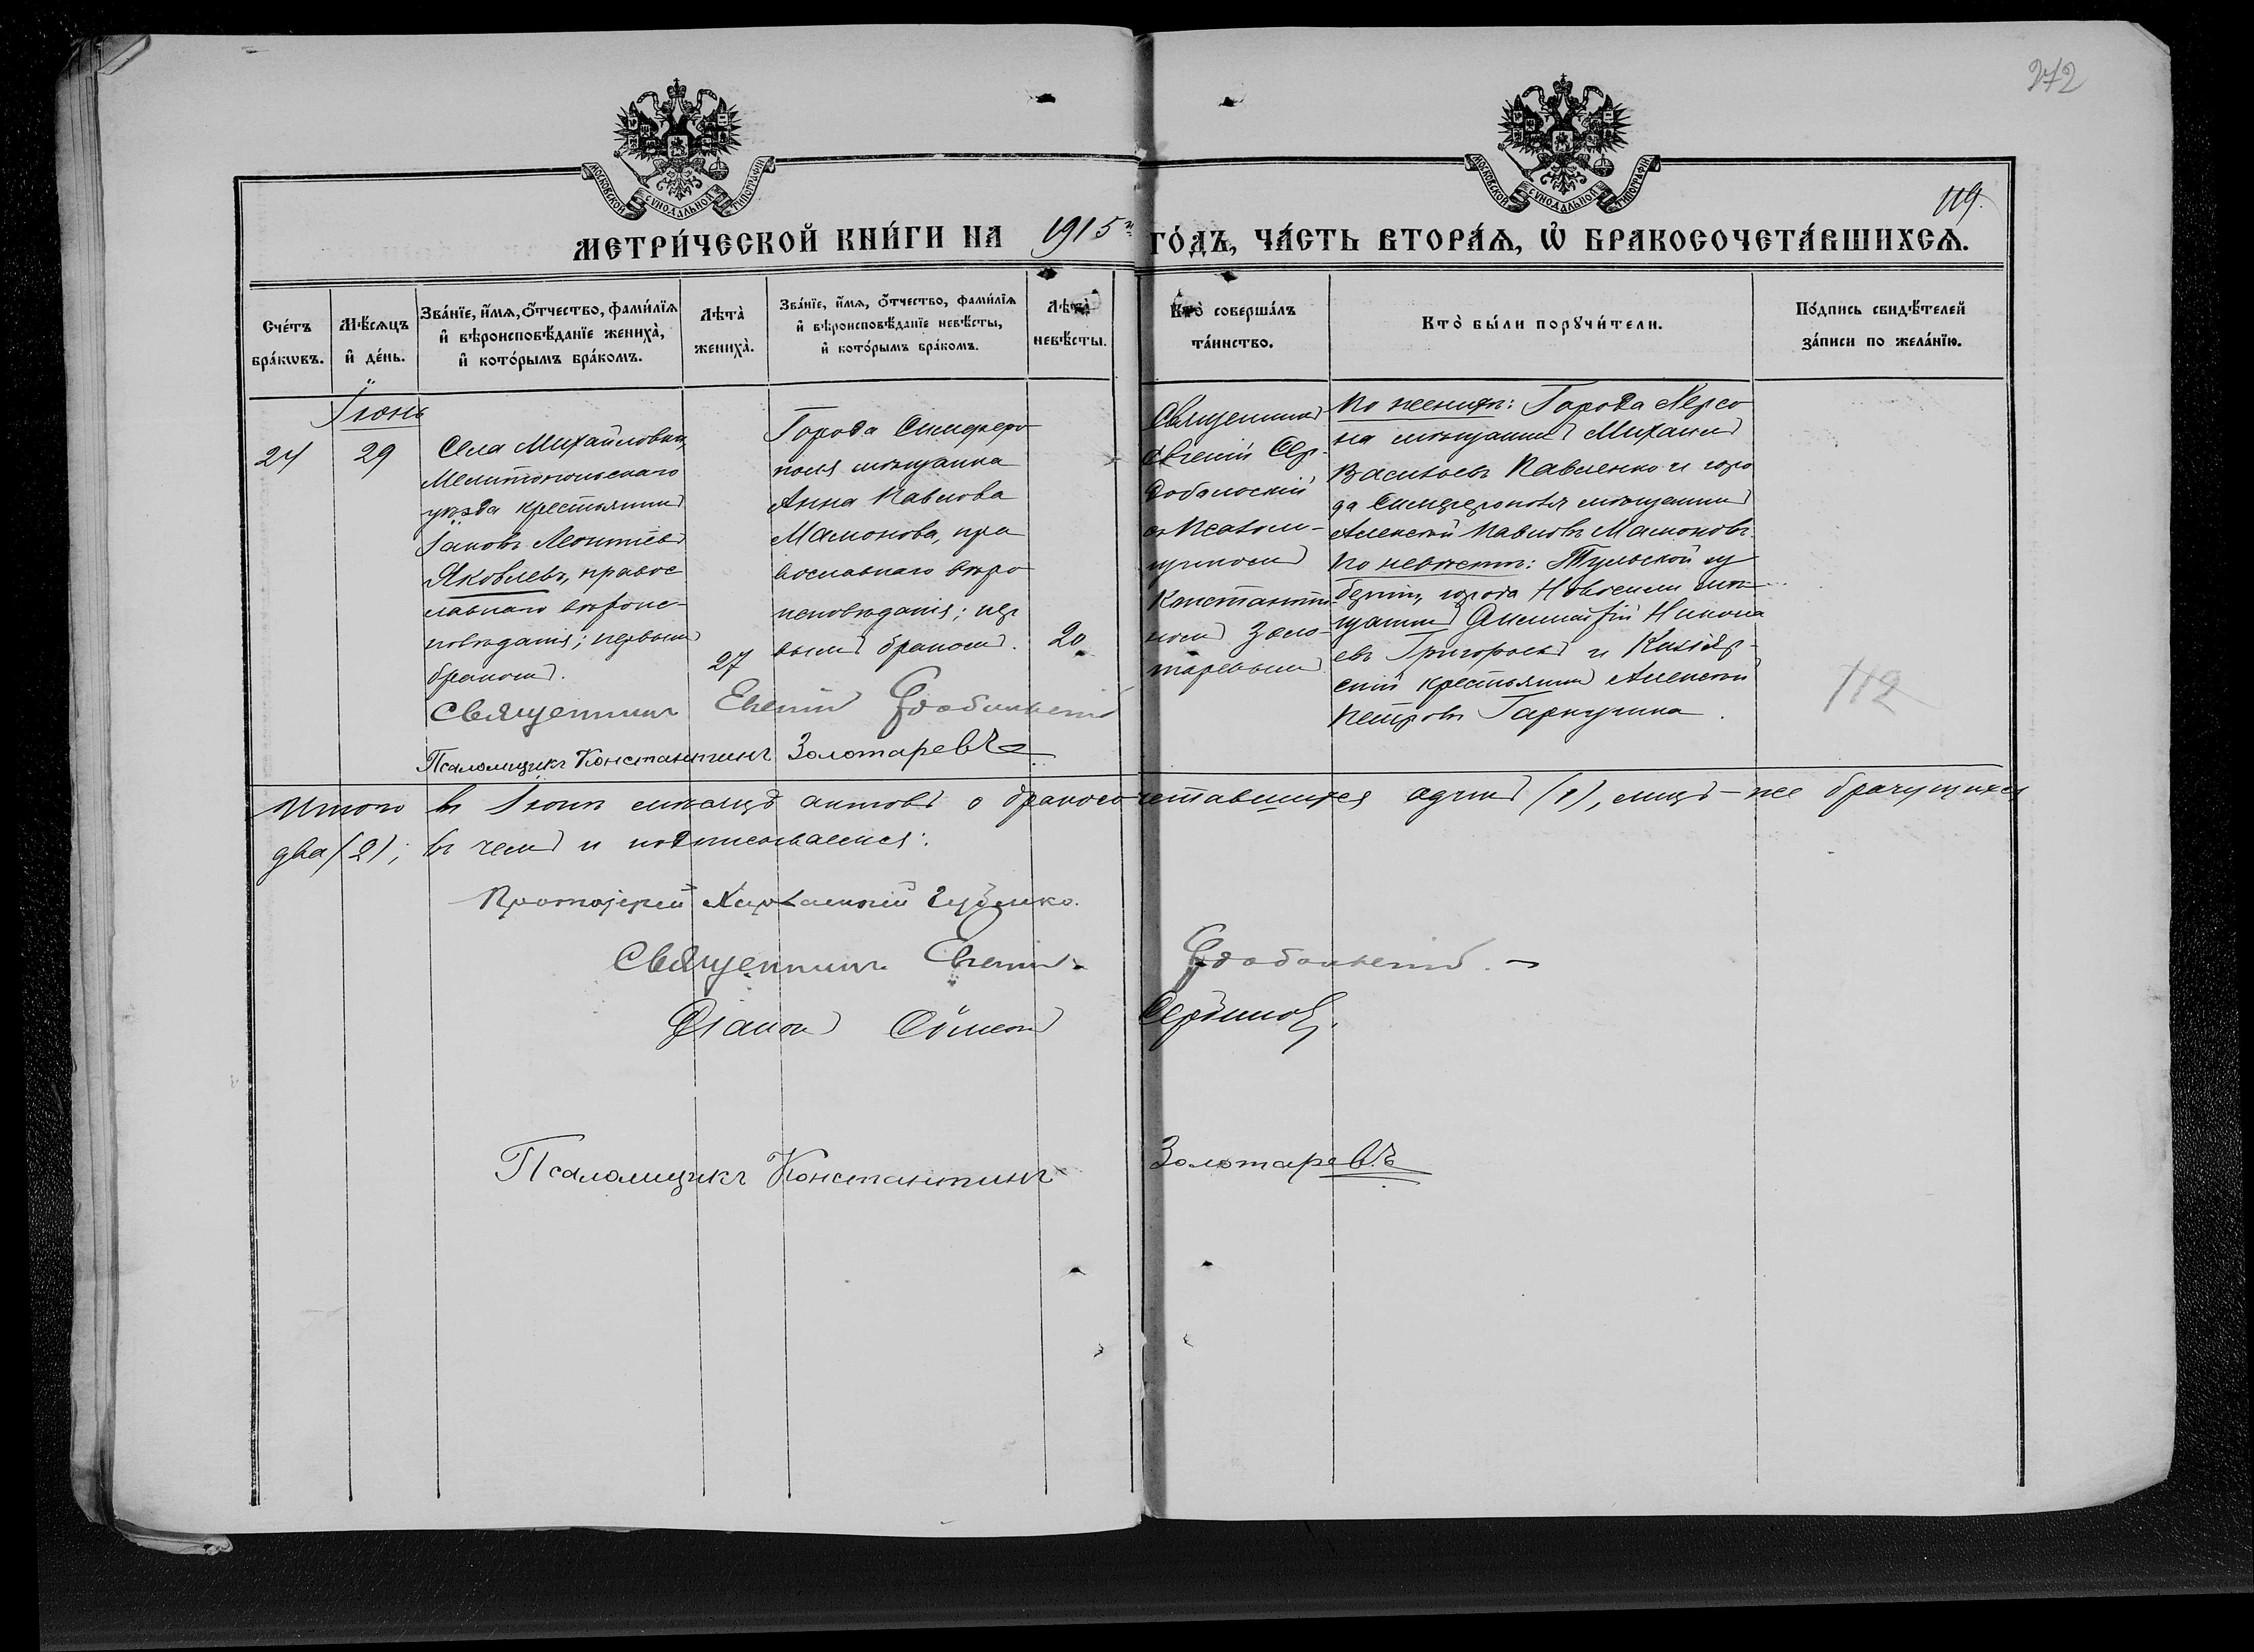 272
119.
МОСКОВСКОЙ СѴНОДАЛЬНОЙ ТИПОГРАФІИ
МОСКОВСКОЙ СѴНОДАЛЬНОЙ ТИПОГРАФІИ
МЕТРИ́ЧЕСКОЙ КНИ́ГИ НА 1915й ГО́ДЪ, ЧА́СТЬ ВТОРА́Ѧ, Ѡ БРАКОСОЧЕТА́ВШИХСѦ.
Сче́тъ бра́кѡвъ.
Мѣ́сѧцъ и҆ де́нь.
Зва́нїе, и҆́мѧ, ѻ҆́тчество, фами́лїѧ
и҆ вѣроисповѣ́данїе жениха̀,
и҆ кото́рымъ бра́комъ.
Лѣта̀ жениха̀.
Зва́нїе, и҆́мѧ, ѻ҆́тчество, фами́лїѧ
и҆ вѣроисповѣ́данїе невѣ́сты,
и҆ кото́рымъ бра́комъ.
Лѣта̀ невѣ́сты.
Кто̀ соверша́лъ
та́инство.
Кто̀ бы́ли порꙋчи́тели.
По́дпись свидѣ́телей
за́писи по жела́нїю.
Іюнь
24
29
Села Михайловки,
Мелитопольскаго
уѣзда крестьянинъ
Іаковъ Леонтіевъ
Яковлевъ, правос
лавнаго вѣроис-
повѣданія; первымъ
бракомъ.
27
Города Симферо
поля мѣщанка
Анна Павлова
Мамонова, пра
вославнаго вѣро
исповѣданія; пер
вымъ бракомъ.
20
Священникъ
Евгеній Сер-
добольскій
съ Псалом-
щикомъ
Константи-
номъ Золо-
таревымъ
По женихѣ: Города Херсо
на мѣщанинъ Михаилъ
Васильевъ Павленко и горо
да Симферополя мѣщанинъ
Алексѣй Павловъ Мамоновъ.
По невѣстѣ: Тульской гу
берніи, города Новосили мѣ-
щанинъ Димитрій Никола
евъ Григорьевъ и
крестьянинъ Алексѣй
Петровъ
112
Священникъ Евгеній Сердобольскій
Псаломщикъ Константинъ Золотаревъ
Итого въ Іюнѣ мѣсяцѣ актовъ о бракосочетавшихся одинъ (1), лицъ-же брачущихся
два (2); въ чемъ и подписываемся:
Протоіерей
Священникъ Евгеній Сердобольскій.
Діаконъ
Псаломщикъ Константинъ Золотаревъ